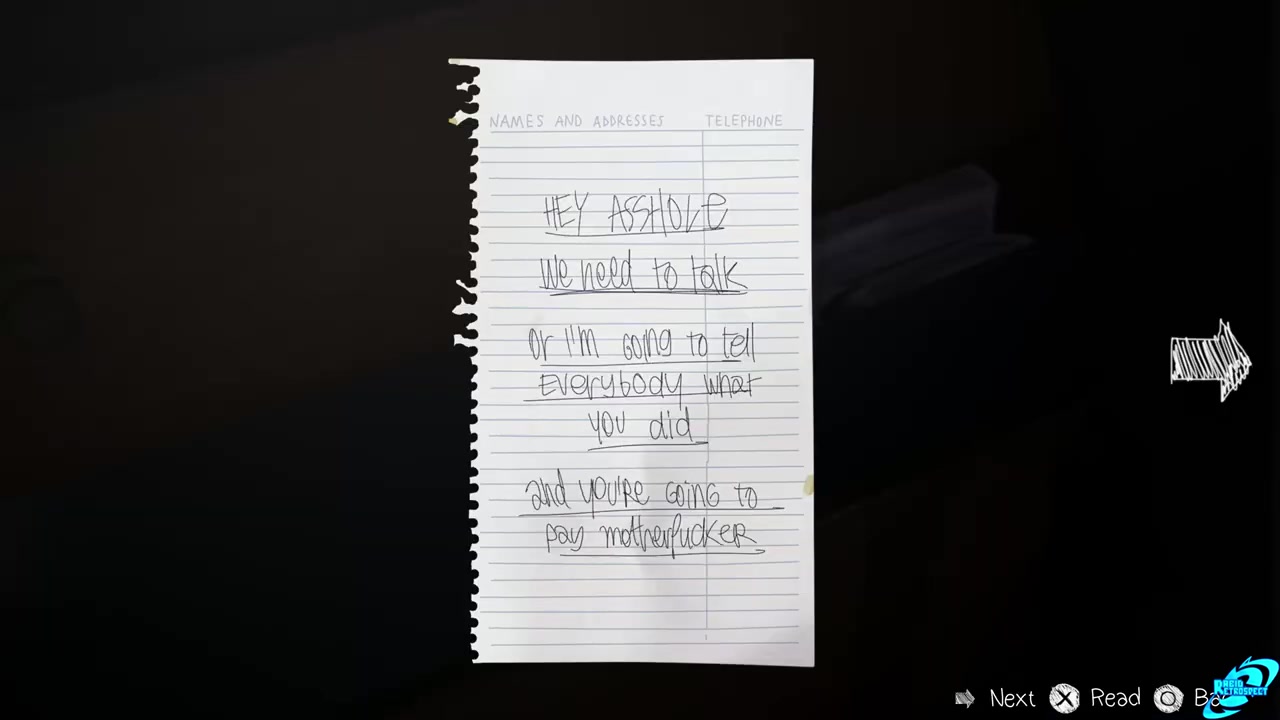 NAMES AND ADDRESSES TELEPHONE
HEY ASSHOLE
We need to talk
Or I'm going to tell
Everybody what
you did
and you're going to
pay motherfucker
Next Read
RABID
RETROSPECT